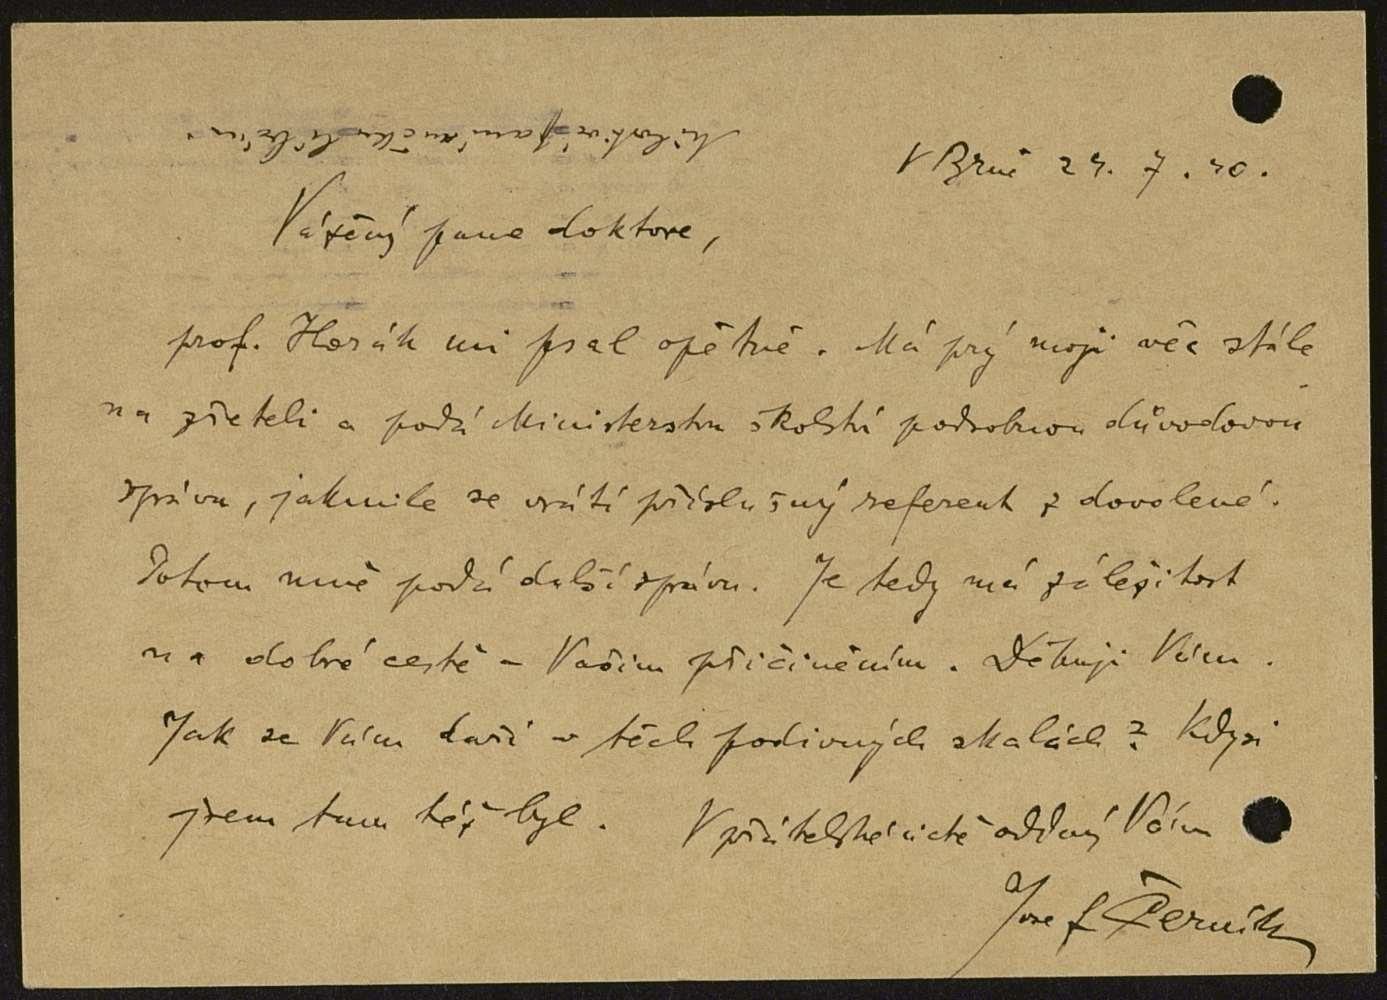 V Brně 24. 7. 40.
Vážený pane doktore,
prof. Horák mi psal opětně. Má prý moji věc stále
na zřeteli a podá Ministerstvu školství podrobnou důvodovou
zprávu, jakmile se vrátí příslušný referent z dovolené.
Potom mně podá další zprávu. Je tedy má záležitost
na dobré cestě - Vaším přičiněním. Děkuji Vám.
Jak se Vám daří v těch podivných skalách? Kdysi
jsem tam též byl. V přátelské úctě oddaný Vám
Josef Černík
Milostivé paní ručku líbám.